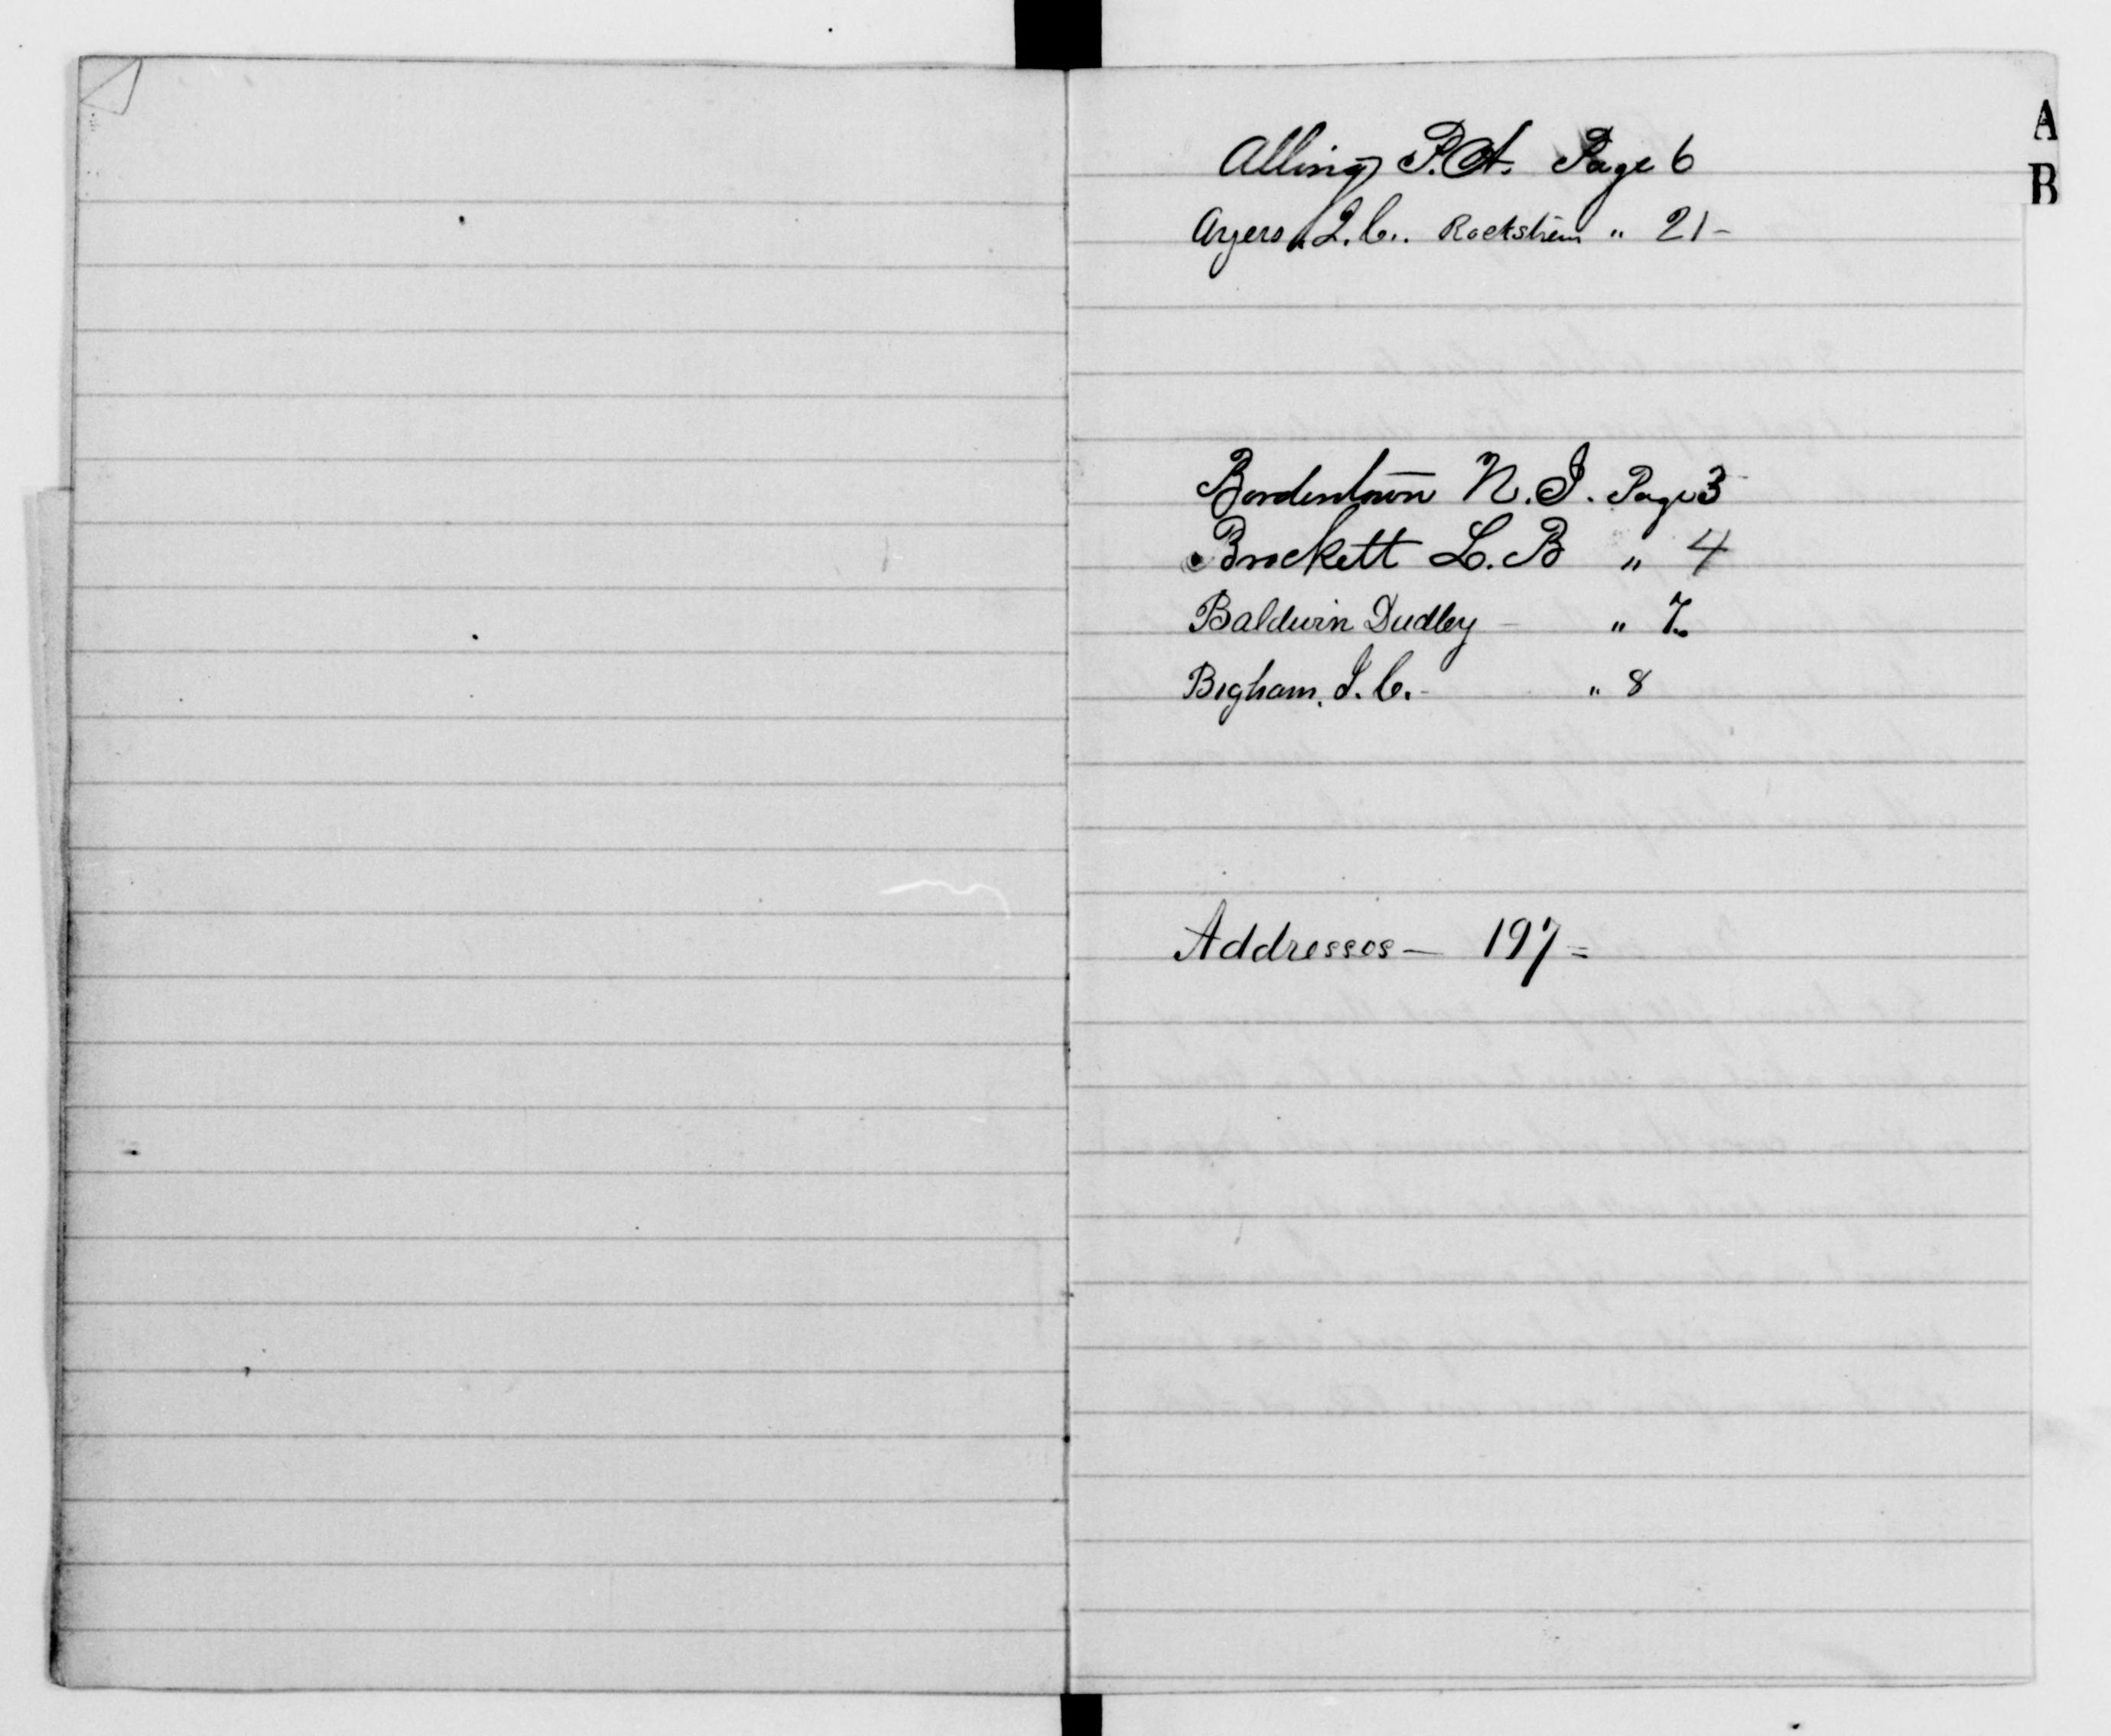 A
B
Alling P.A. Page 6
Ayers L.C. " 21-
Bordentown N.J. Page 3
Brockett L.B " 4
Baldwin Dudley - " 7.
Bigham, J.C. - " 8
Addresses — 197=